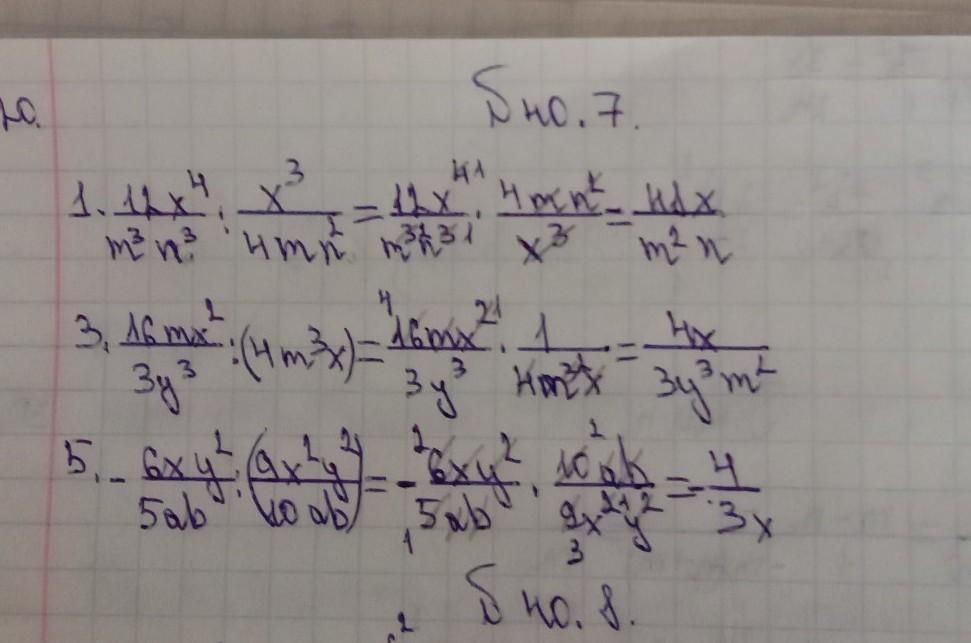 го.
Б но. 7.
1. 12x⁴/m³n³ : x³/4mn² = 12x⁴¹/m³²n³¹ · 4mn²/x³ = 48x/m²n
3. 16mx²/3y³ : (4m³x) = ⁴16mx²¹/3y³ · 1/4m³²x = 4x/3y³m²
5. - 6xy²/5ab : (9x²y²/10ab) = - ²6xy²/₁5ab · ²10ab/₃9x²¹y² = - 4/3x
Б но. 8.